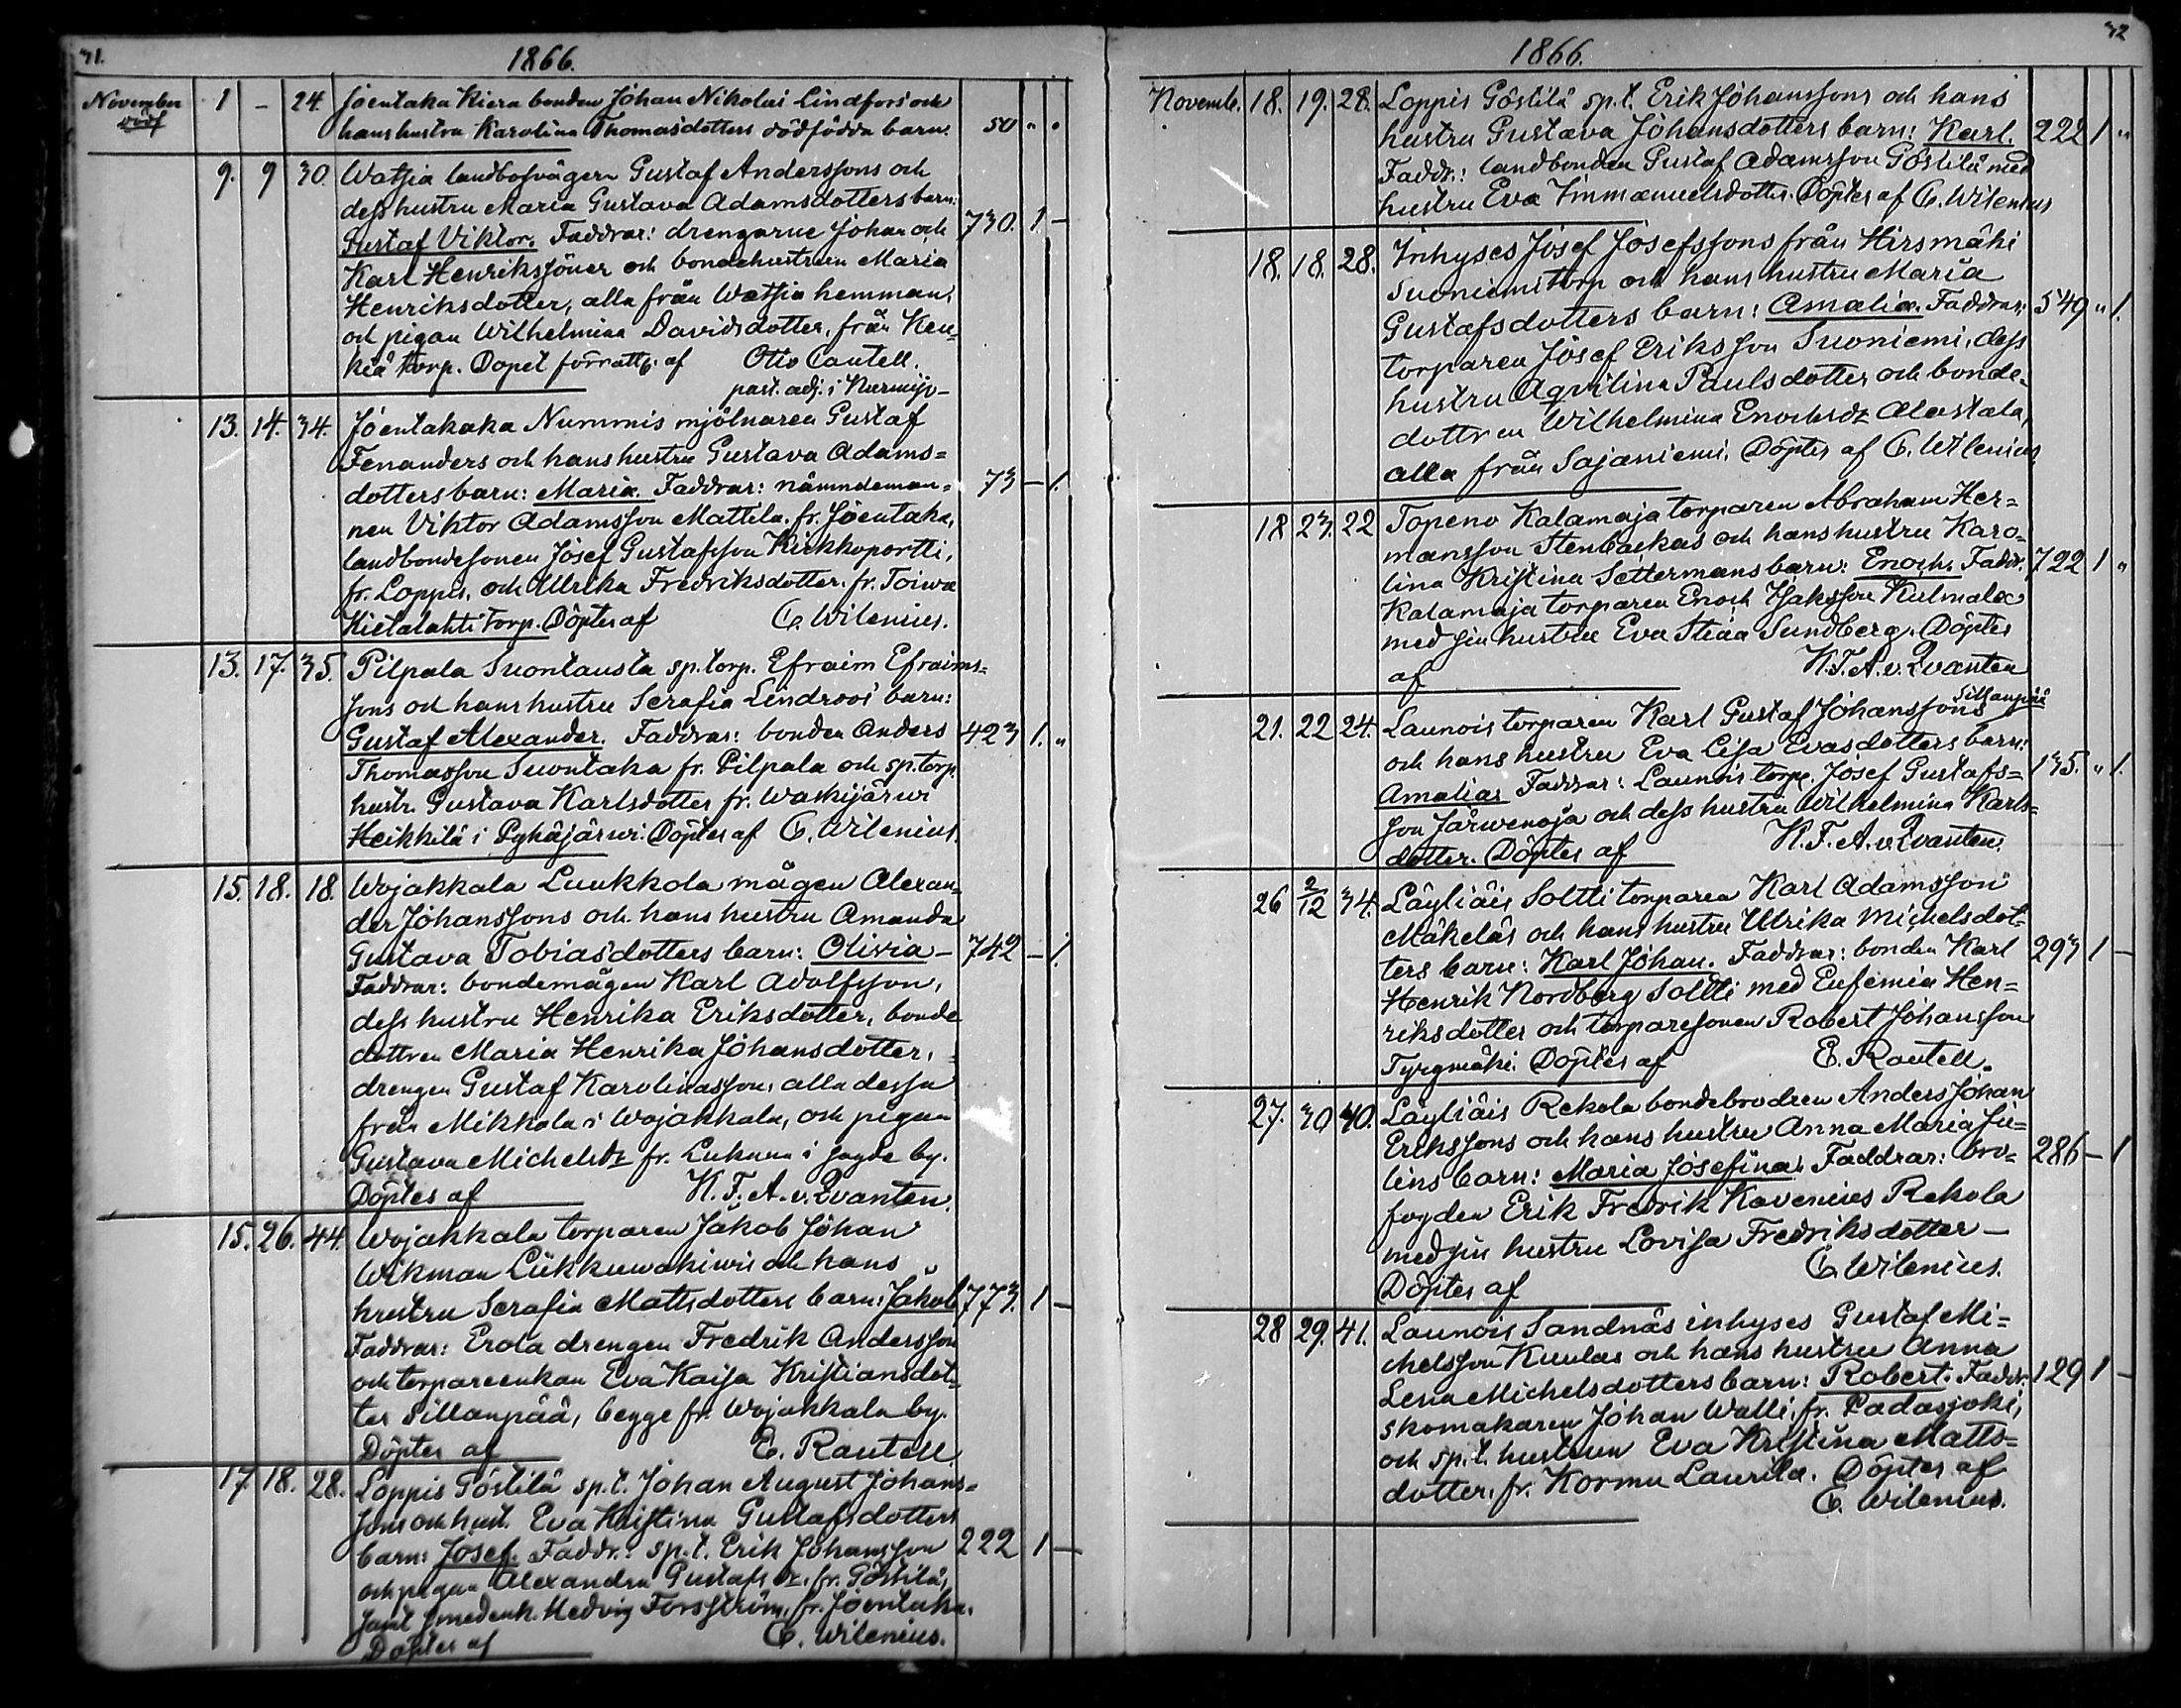 71.
1866.
November 1 – 24. Joentaka Kiera bonden Johan Nikolai Lindfors och
död hans hustru Karolina Thomasdotters dödfödda barn. 50 " "
9. 9 30. Watsia landbosvågern Gustaf Anderssons och
dess hustru Maria Gustava Adamsdotters barn:
Gustaf Viktor. Faddrar: drengarne Johan och 730. 1. –
Karl Henrikssöner och bondehustrun Maria
Henriksdotter, alla från Watsia hemman,
och pigan Wilhelmina Davidsdotter, från
torp. Dopet förrättp. af Otto Cantell.
past. adj. i Nurmijo-
13. 14. 34. Joentakaka Nummis mjölnaren Gustaf
Fenanders och hans hustru Gustava Adams=
dotters barn: Maria. Faddrar: nämndeman= 73 – 1.
nen Viktor Adamsson Mattila. fr. Joentaka,
landbondesonen Josef Gustafsson Kirkkoportti,
fr. Loppis, och Ulrika Fredriksdotter. fr. Toiwa
Kietalahti torp. Döptes af C. Wilenius.
13. 17. 35. Pilpala Suontausta sp. torp. Efraim Efraims=
sons och hans hustru Serafia Lindroos barn:
Gustaf Alexander. Faddrar: bonden Anders 423 1. "
Thomasson Suontaka fr. Pilpala och sp. torp.
hustr. Gustava Karlsdotter fr. Waskijärwi
Heikkilä i Pyhäjärwi. Döptes af C. Wilenius.
15. 18. 18. Wojakkala Luukkola mågen Alexan=
der Johanssons och hans hustru Amanda
Gustava Tobiasdotters barn: Olivia – 742 – 1.
Faddrar: bondemågen Karl Adolfsson,
dess hustru Henrika Eriksdotter, bonde
dottren Maria Henrika Johansdotter,
drengen Gustaf Karolinasson, alla dessa
från Mikkola i Wojakkala, och pigan
Gustava Michelsdr fr. i sagde by.
Döptes af K. F. A. v. Qvanten.
15. 26. 44. Wojakkala torparen Jakob Johan
Wikman Liikkuwakiwis och hans
hustru Serafia Mattsdotters barn: Jakob 773. 1 –
Faddrar: Erola drengen Fredrik Andersson
och torpareenkan Eva Kaisa Kristiansdot=
ter Sillanpää, begge fr. Wojakkala by.
Döptes af E. Rautell.
17. 18. 28. Loppis Göstilä sp. t. Johan August Johans=
sons och hust. Eva Kristina Gustafsdotters
barn: Josef. Faddr.: sp. t. Erik Johansson 222 1 –
och pigan Alexandra Gustafsdr. fr. Göstilä,
samt smedenk. Hedvig Forsström, fr. Joentaka.
Döptes af C. Wilenius.
72
1866.
Novemb. 18. 19. 28. Loppis Göstilä sp. t. Erik Johanssons och hans
hustru Gustava Johansdotters barn: Karl. 222 1 "
Faddr.: landbonden Gustaf Adamsson Göstilä med
hustru Eva Immanuelsdotter. Döptes af C. Wilenius
18. 18. 28. Inhyses Josef Josefssons från Hirsmäki
Suoniemi torp och hans hustru Maria
Gustafsdotters barn: Amalia. Faddrar: 549 " 1.
torparen Josef Eriksson Suoniemi, dess
hustru Aqvilina Paulsdotter och bonde=
dottren Wilhelmina Enochsdr Alastala,
alla från Sajaniemi. Döptes af C. Wilenius.
18 23. 22 Topeno Kalamaja torparen Abraham Her=
mansson Stenbackas och hans hustru Karo=
lina Kristina Settermans barn: Enoch. Faddr. 722 1 "
Kalamaja torparen Enoch Isaksson Kulmala
med sin hustru Eva Stina Sundberg. Döptes
af K. F. A. v. Qvanten
Sillanpää
21. 22 24. Launois torparen Karl Gustaf Johanssons
och hans hustru Eva Lisa Evasdotters barn:
Amalia. Faddrar: Launois torp. Josef Gustafs= 135. " 1.
son Järwenoja och dess hustru Wilhelmina Karls=
dotter. Döptes af K. F. A. v. Qvanten.
26 2/12 34. Läyliäis Soltti torparen Karl Adamsson
Mäkeläs och hans hustru Ulrika Michelsdot=
ters barn: Karl Johan. Faddrar: bonden Karl 293 1 –
Henrik Nordberg Soltti med Eufemia Hen=
riksdotter och torparesonen Robert Johansson
Tyrymäki. Döptes af E. Rautell.
27. 30 40. Läyliäis Rekola bondebrodren Anders Johan
Erikssons och hans hustru Anna Maria
lins barn: Maria Josefina. Faddrar: bro= 286 – 1
fogden Erik Fredrik Kavenius Rekola
med sin hustru Lovisa Fredriksdotter –
Döptes af C. Wilenius.
28 29. 41. Launois Sandnäs inhyses Gustaf Mi=
chelsson Kuulas och hans hustru Anna
Lena Michelsdotters barn: Robert. Faddr. 129 1 –
skomakaren Johan Walli, fr. Padasjoki,
och sp. t. hustrun Eva Kristina Matts=
dotter, fr. Kormu Laurila. Döptes af
C. Wilenius.